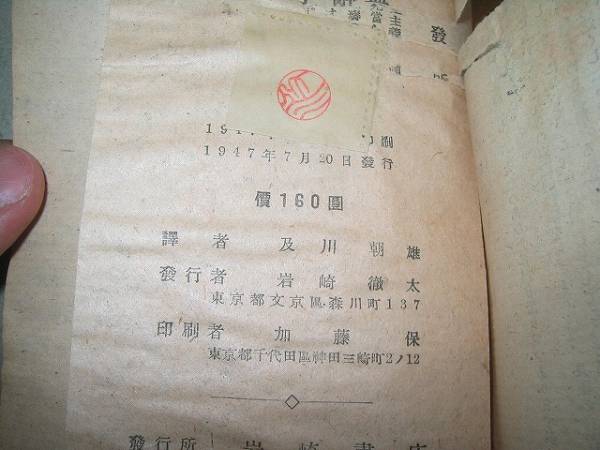 發
1947年7月20日發行
價160圓
譯者 及川朝雄
發行者 岩崎徹太
東京都文京區森川町137
印刷者 加藤保
東京都千代田區神田三崎町2ノ12
發行所 岩崎書店